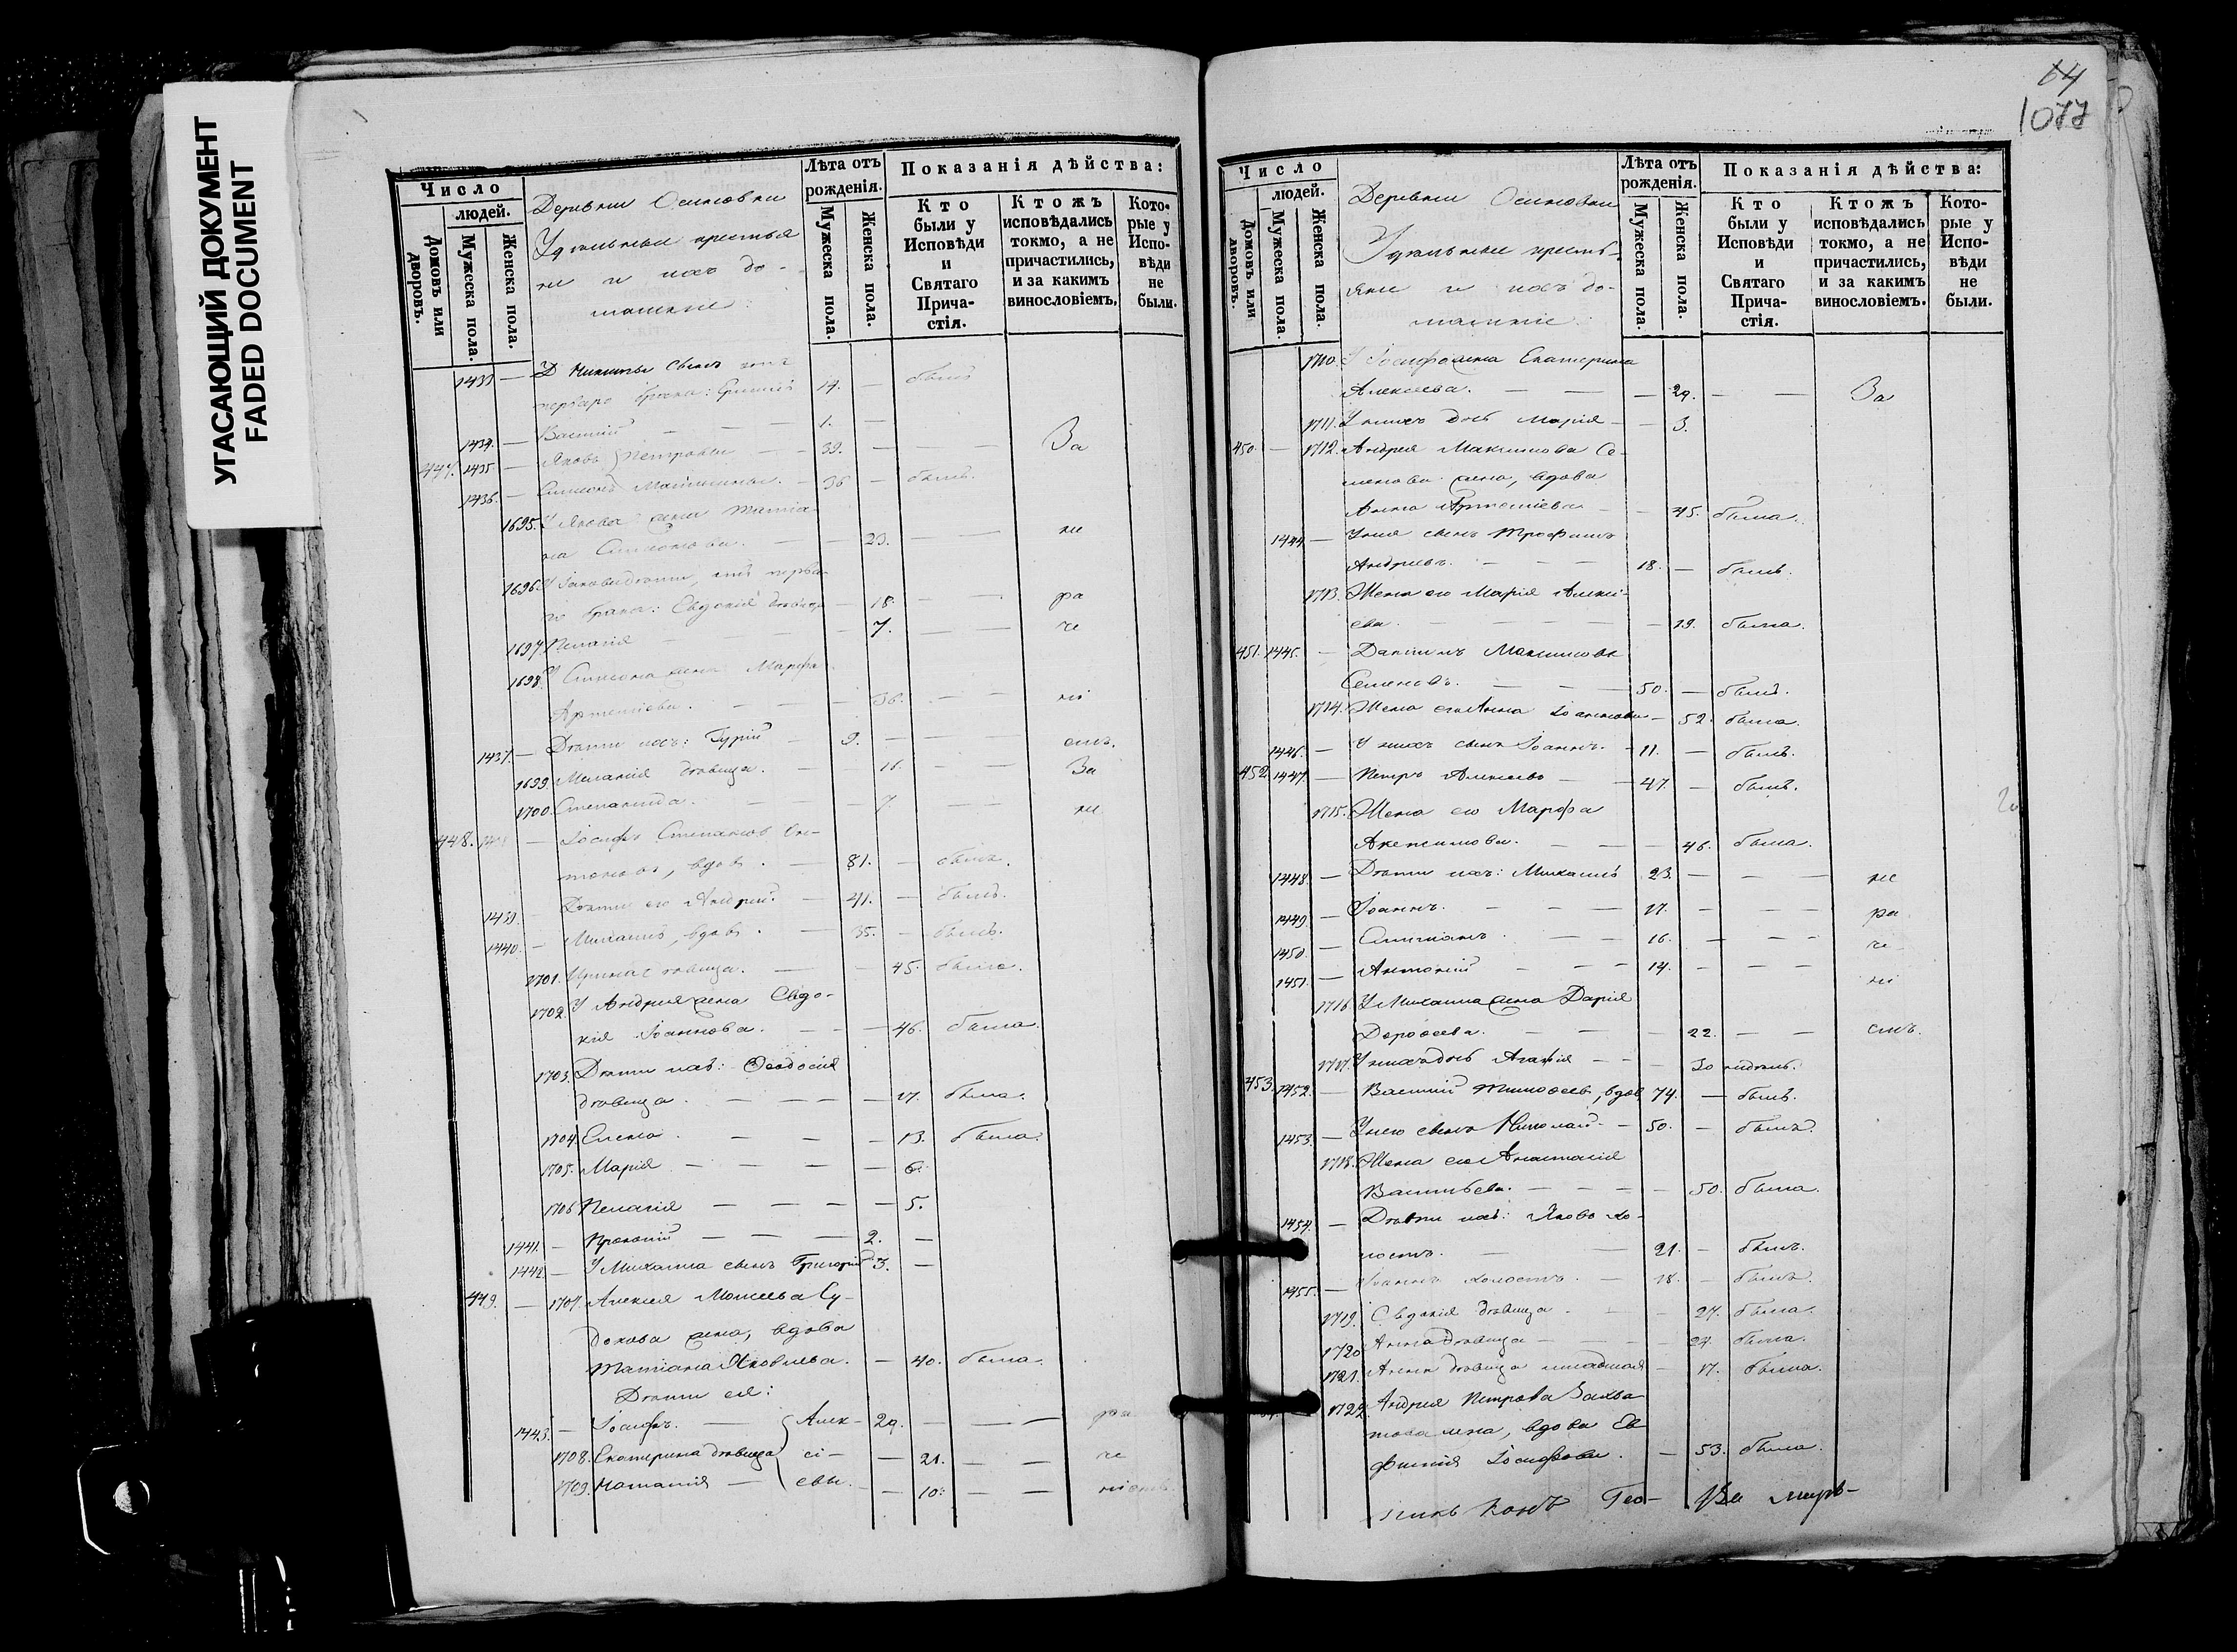 УГАСАЮЩИЙ ДОКУМЕНТ
FADED DOCUMENT
Число
людей.
Домовъ или дворовъ.
Мужеска пола.
Женска пола.
Деревни Осиновки
Удѣльные крестья
не и ихъ до-
машніе:
Лѣта отъ рожденія.
Мужеска пола.
Женска пола.
Показанія дѣйства:
Кто были у Исповѣди и Святаго Причастія.
Ктожъ исповѣдались токмо, а не причастились, и за какимъ винословіемъ.
Которые у Исповѣди не были.
1433 — Никиты сынъ отъ
перваго брака: 14. — былъ
1434. — Василій — — 1. —
447. 1435 — Яковъ Петровы — 39. — — За
1436. — Симеонъ — 36 — былъ.
1695. У Якова жена Татіа-
на Симеонова. — — 23. — — не
1696. У Іакова дѣти, отъ перва-
го брака: Евдокія дѣвица — 18. — — ра
1697. Пелагія — — 7. — — че
1698. У Симеона жена Марфа
Артеміева. — — 36. — — ні
1437. — Дѣти ихъ: Гурій — 9. — — — емъ.
1699. Меланія дѣвица. — 11. — — За
1700. Степанида. — — 7. — — не
448. — Іосифъ Степановъ
вдовъ. — 81. — былъ.
1439. — Дѣти его Андрей. — 41. — былъ.
1440. — Михаилъ, вдовъ. — 35. — былъ.
1701. Ирина дѣвица. — — 45. была.
1702. У Андрея жена Евдо-
кія Іоаннова. — — 46. была.
1703. Дѣти ихъ: Ѳеодосія
дѣвица. — — — 17. была.
1704. Елена. — — — 13. была.
1705. Марія — — — — 6.
1706. Пелагія — — — — 5.
1441. — Прокопій — — — 2. —
1442. — У Михаила сынъ Григорій 3. —
449. — 1707. Алексія Моисеева Су-
дакова жена, вдова
Татіана Яковлева. — 40. была.
Дѣти ея:
1443. — Іосифъ. — Алек- 29. — — — ра
1708. Екатерина дѣвица сі- — 21. — — че
1709. Наталія — евы. — 10. — — ніемъ.
64
1077
Число
людей.
Домовъ или дворовъ.
Мужеска пола.
Женска пола.
Деревни Осиновки
Удѣльные кресть-
яне и ихъ до-
машніе:
Лѣта отъ рожденія.
Мужеска пола.
Женска пола.
Показанія дѣйства:
Кто были у Исповѣди и Святаго Причастія.
Ктожъ исповѣдались токмо, а не причастились, и за какимъ винословіемъ.
Которые у Исповѣди не были.
1710. У Іосифа жена Екатерина
Алексѣева. — — — 29. — — За
1711. У нихъ дочь Марія — — 3.
450. — 1712. Андрея Максимова Се-
менова жена, вдова
Анна Артеміева — — 45. была.
1444 — У нея сынъ Трофимъ
Андреевъ. — — — 18. — былъ.
1713. Жена его Марія Алексі-
ева. — — — — 19. была.
451. 1445. — Даніилъ Максимовъ
Семеновъ. — — — 50. — былъ.
1714. Жена его Анна Іоаннова — 52. была.
1446. — У нихъ сынъ Іоаннъ. — 11. — былъ.
452. 1447. — Петръ Алексѣевъ — — 47. — былъ.
1715. Жена его Марфа
Акепсимова. — — — 46. была.
1448. — Дѣти ихъ: Михаилъ 23. — — — не
1449. — Іоаннъ. — — — 17. — — — ра
1450. — Симеонъ. — — 16. — — — че
1451. — Антоній — — — 14. — — — ні
1716. У Михаила жена Дарія
Дороѳеева. — — — 22. — — емъ.
1717. У нихъ дочь Агафія — — 30 недѣль.
453. 1452. — Василій Тимоѳеевъ, вдов 74. — былъ.
1453. — У него сынъ Николай — — 50. — былъ.
1718. Жена его Анастасія
Васильева. — — — — 50. была.
1454. — Дѣти ихъ: Яковъ хо-
лостъ. — — 21. — былъ.
1455. — Іоаннъ холостъ. — 18. — былъ.
1719. Евдокія дѣвица. — — 27. была.
1720. Анна дѣвица — — — 24. была.
1721. Анна дѣвица младшая — 17. была.
1722. Андрея Петрова
жена, вдова Ев-
фимія Іосифова. — 53. была.